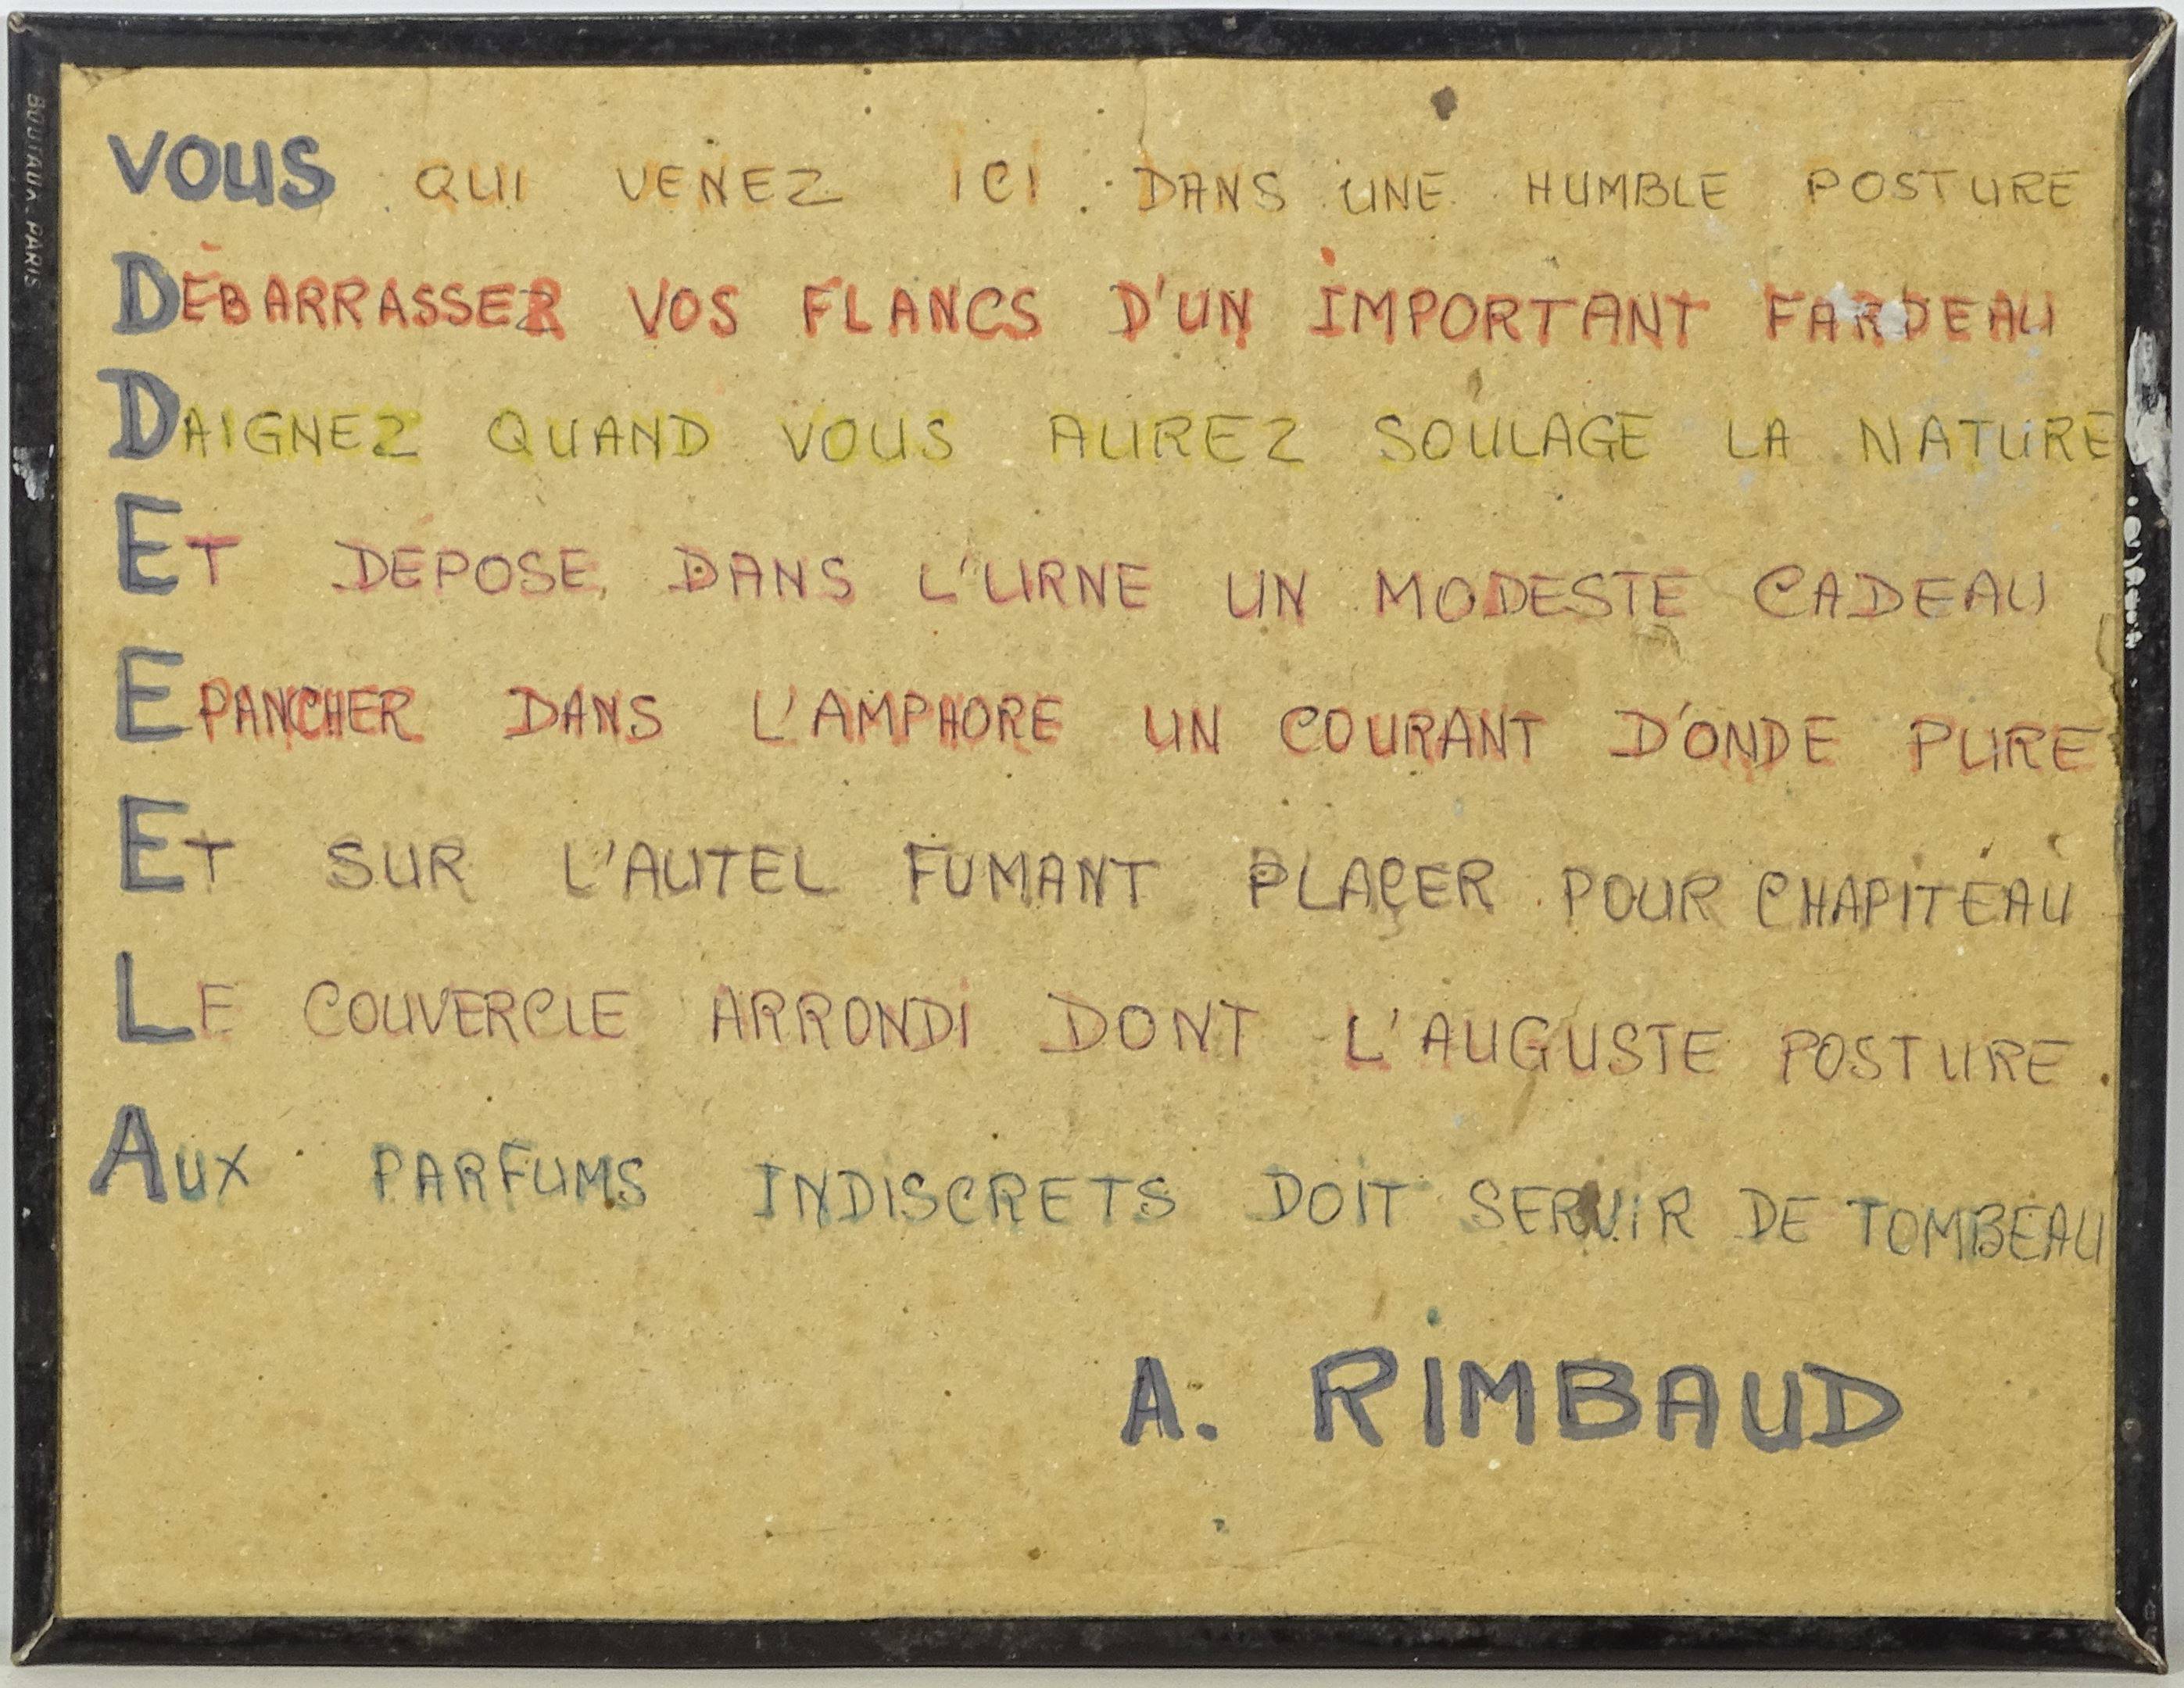 BOUTAUX. PARIS
VOUS QUI VENEZ ICI DANS UNE HUMBLE POSTURE
DÉBARRASSER VOS FLANCS D'UN IMPORTANT FARDEAU
DAIGNEZ QUAND VOUS AUREZ SOULAGE LA NATURE
ET DÉPOSE DANS L'URNE UN MODESTE CADEAU
EPANCHER DANS L'AMPHORE UN COURANT D'ONDE PURE
ET SUR L'AUTEL FUMANT PLAÇER POUR CHAPITEAU
LE COUVERCLE ARRONDI DONT L'AUGUSTE POSTURE
AUX PARFUMS INDISCRETS DOIT SERVIR DE TOMBEAU
A. RIMBAUD